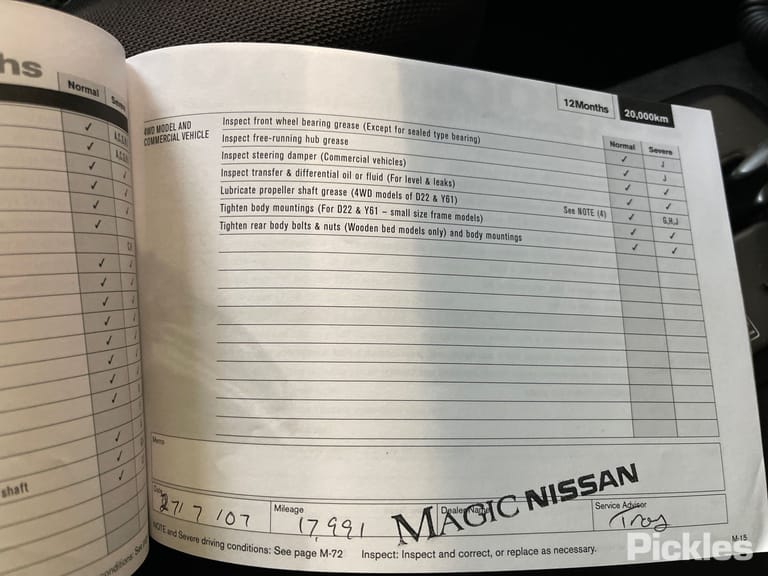 hs
Normal Severe
✓
✓ A,C,
✓ A,C,
✓ ✓
✓ ✓
✓ ✓
✓ ✓
✓ ✓
✓ ✓
✓ ✓
✓ ✓
✓ ✓
✓ ✓
✓ ✓
✓
✓
shaft ✓
12Months 20,000km
Normal Severe
4WD MODEL AND
COMMERCIAL VEHICLE
Inspect front wheel bearing grease (Except for sealed type bearing) ✓ J
Inspect free-running hub grease ✓ J
Inspect steering damper (Commercial vehicles) ✓ ✓
Inspect transfer & differential oil or fluid (For level & leaks) ✓ ✓
Lubricate propeller shaft grease (4WD models of D22 & Y61) See NOTE (4) ✓ G,H,J
Tighten body mountings (For D22 & Y61 – small size frame models) ✓ ✓
Tighten rear body bolts & nuts (Wooden bed models only) and body mountings ✓ ✓
Memo
Date 27/7/07
Mileage 17,991
Dealer Name MAGIC NISSAN
Service Advisor Troy
NOTE and Severe driving conditions: See page M-72 Inspect: Inspect and correct, or replace as necessary.
M-15
Pickles